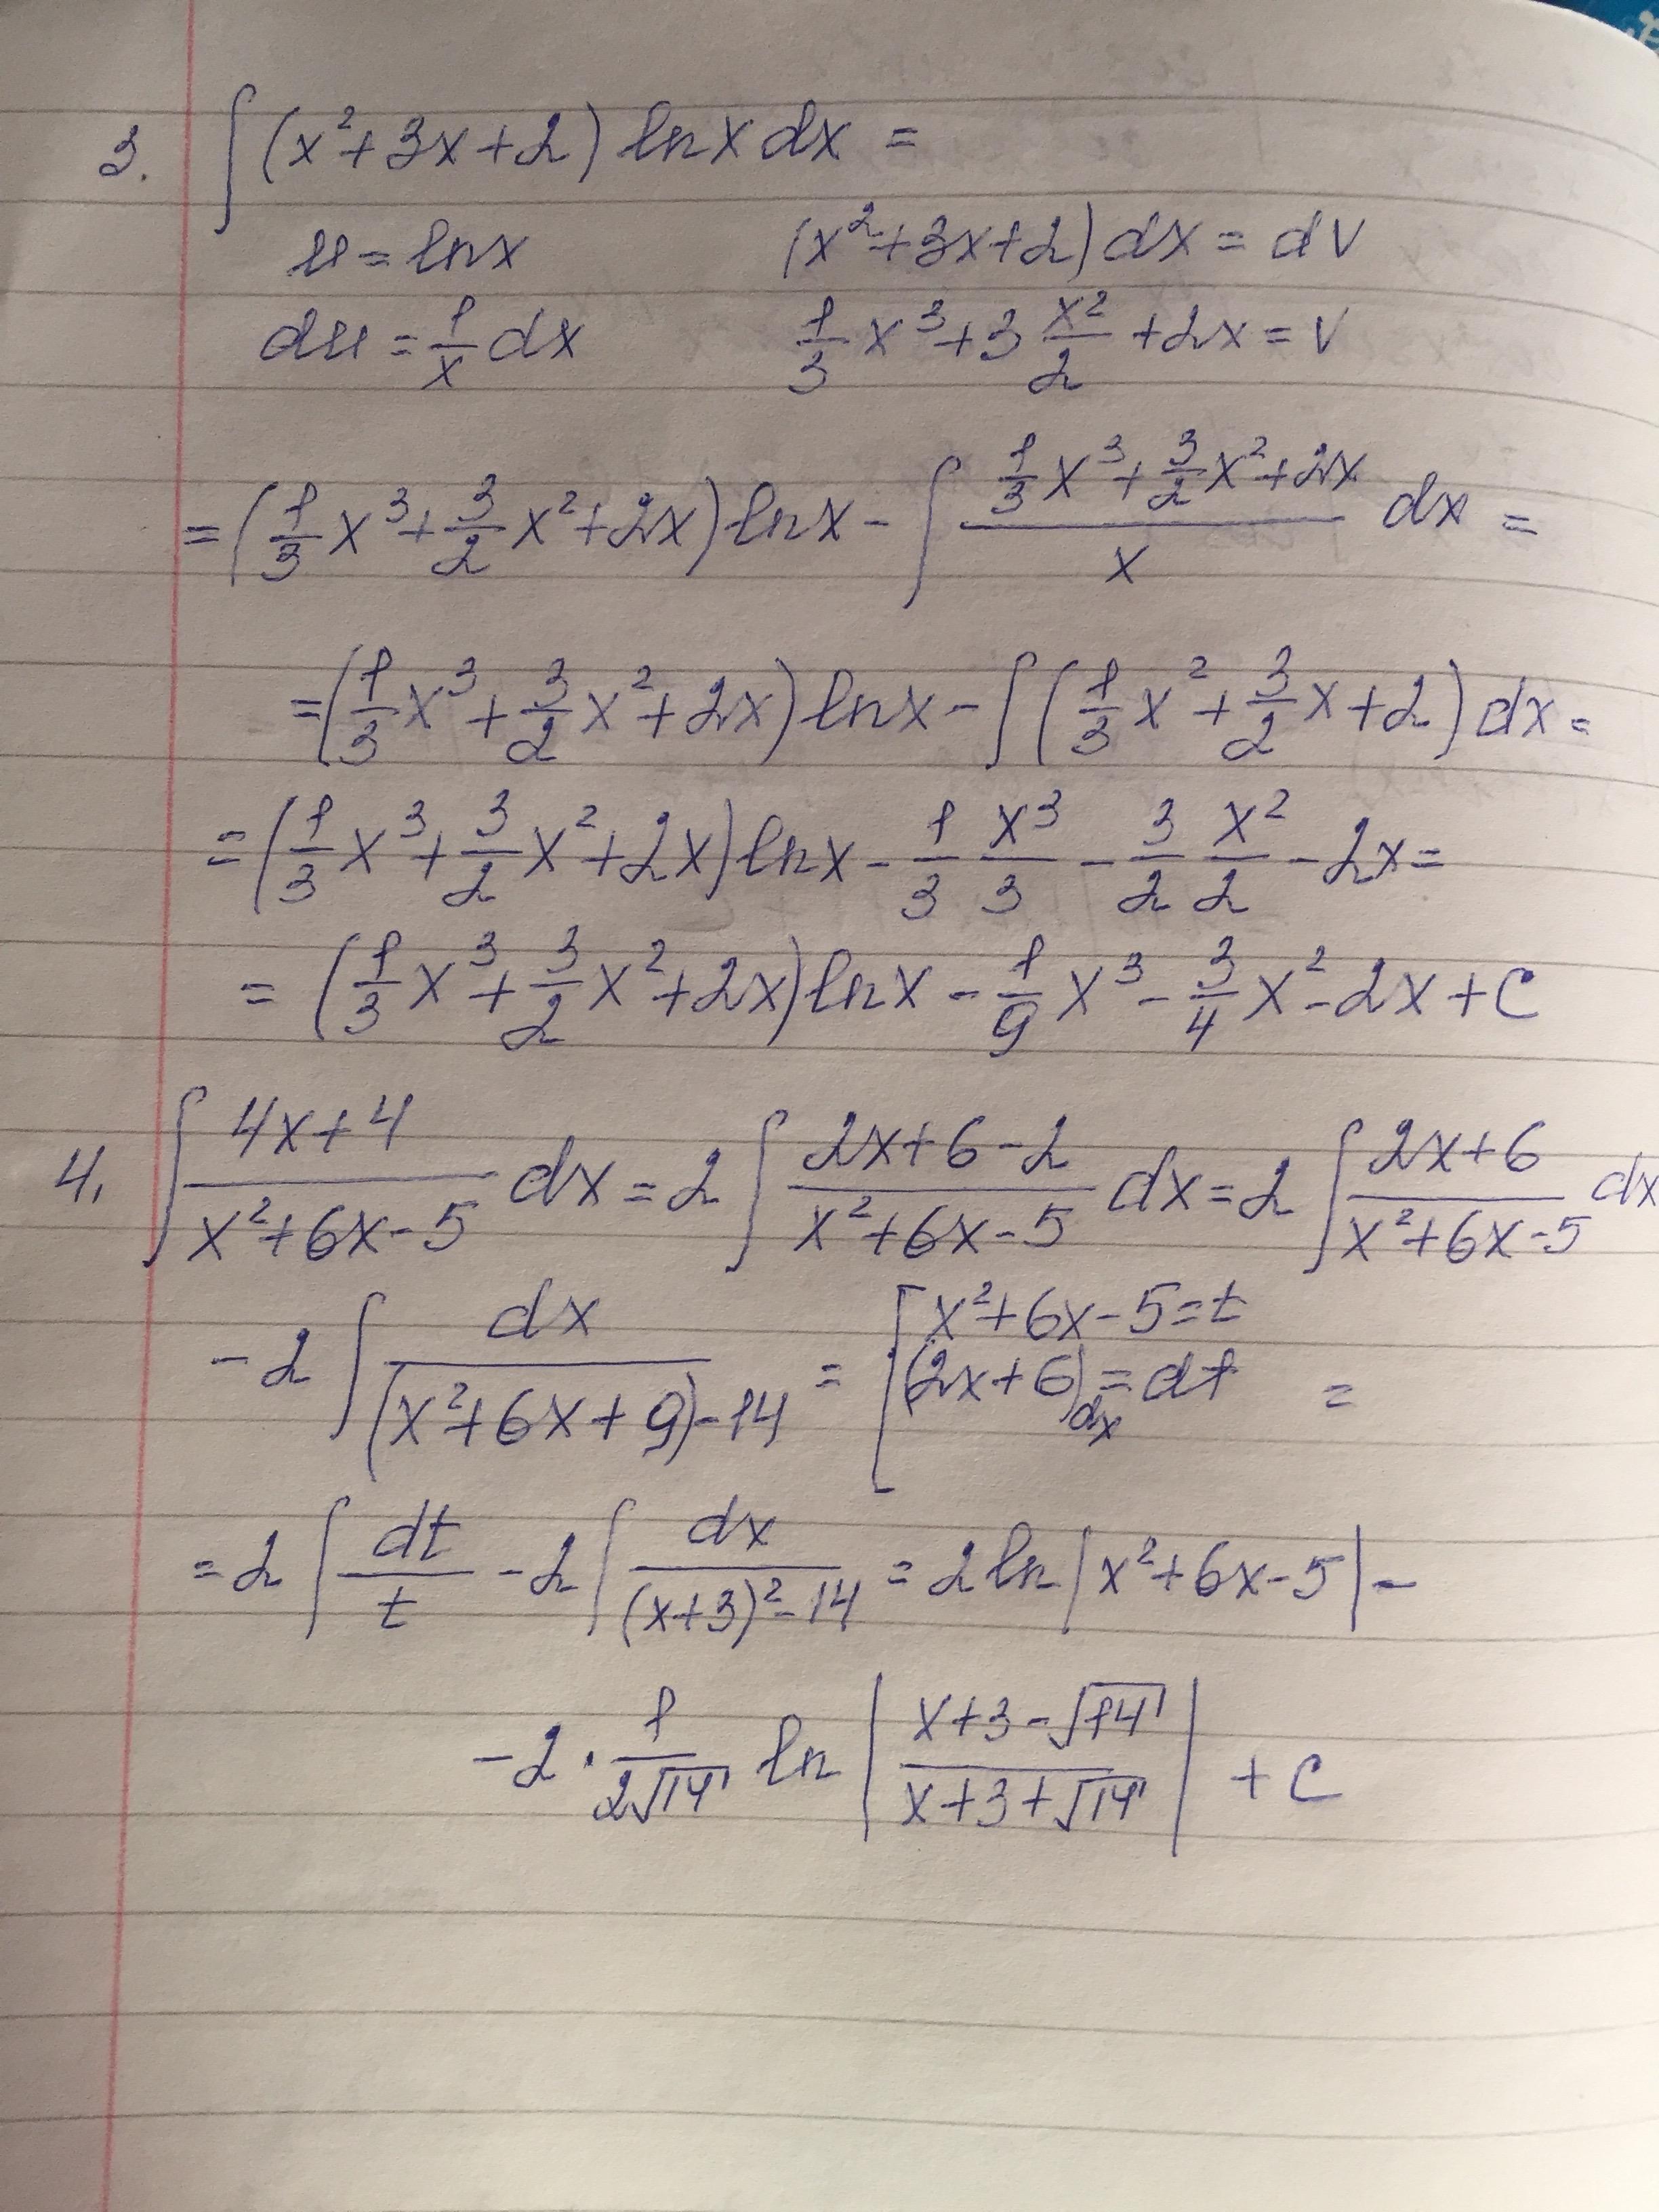 3. ∫(x²+3x+2) ln x dx =
u = ln x (x²+3x+2)dx = dV
du = 1/x dx 1/3 x³ + 3 x²/2 + 2x = V
= (1/3 x³ + 3/2 x² + 2x) ln x - ∫ (1/3 x³ + 3/2 x² + 2x)/x dx =
= (1/3 x³ + 3/2 x² + 2x) ln x - ∫(1/3 x² + 3/2 x + 2) dx =
= (1/3 x³ + 3/2 x² + 2x) ln x - 1/3 x³/3 - 3/2 x²/2 - 2x =
= (1/3 x³ + 3/2 x² + 2x) ln x - 1/9 x³ - 3/4 x² - 2x + C
4. ∫ (4x+4)/(x²+6x-5) dx = 2 ∫ (2x+6-2)/(x²+6x-5) dx = 2 ∫ (2x+6)/(x²+6x-5) dx
- 2 ∫ dx/((x²+6x+9)-14) = [x²+6x-5=t
(2x+6)dx = dt =
= 2 ∫ dt/t - 2 ∫ dx/((x+3)²-14) = 2 ln |x²+6x-5| -
- 2 · 1/(2√14) ln |(x+3-√14)/(x+3+√14)| + C